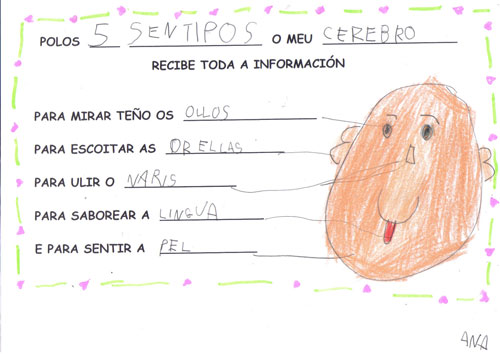 POLOS 5 SENTIPOS O MEU CEREBRO
RECIBE TODA A INFORMACIÓN
PARA MIRAR TEÑO OS OLLOS
PARA ESCOITAR AS ORELLAS
PARA ULIR O NARIS
PARA SABOREAR A LINGUA
E PARA SENTIR A PEL
ANA